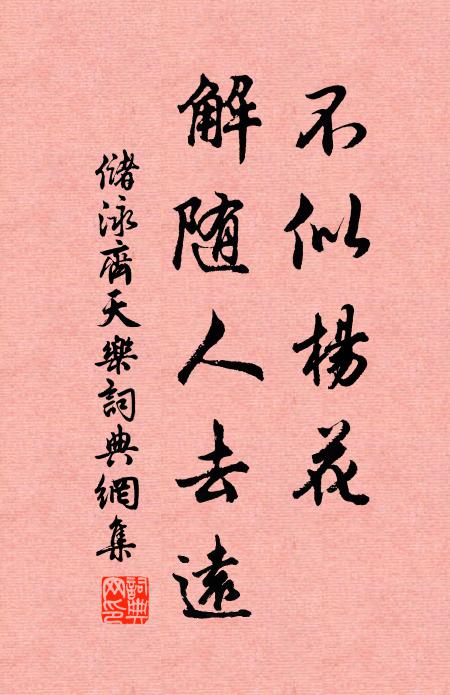 不似楊花
解随人去遠
儲泳齊天樂詞典網集
詞典
网